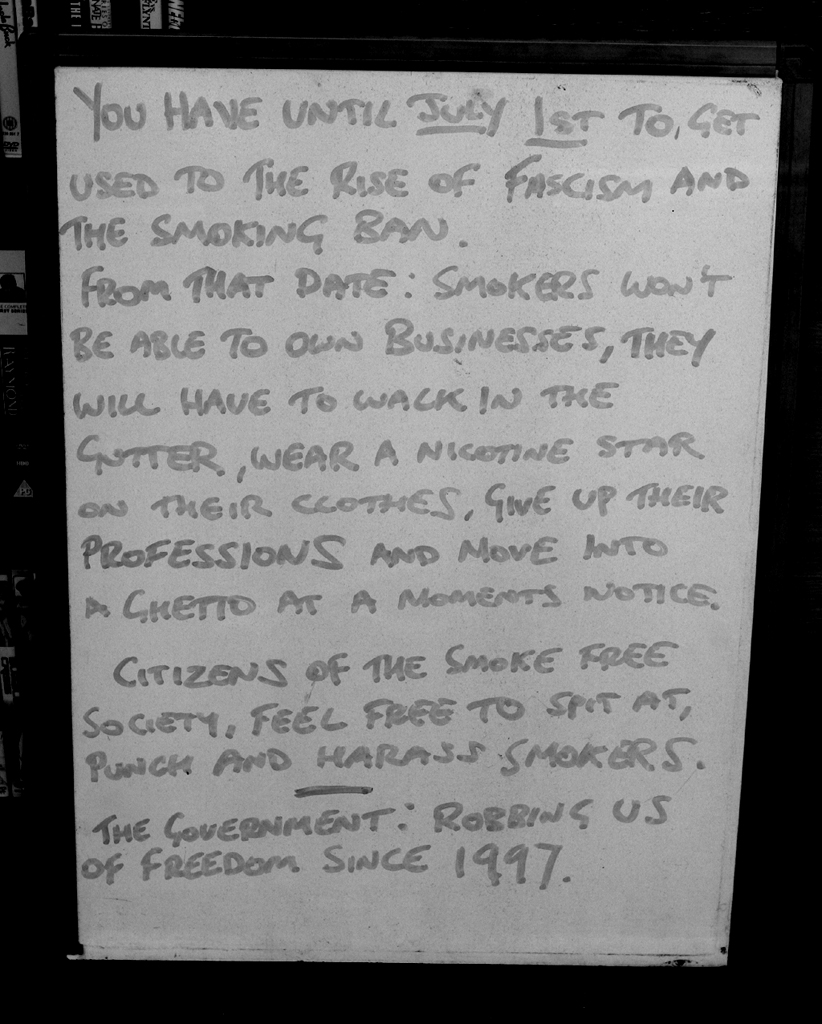 YOU HAVE UNTIL JULY 1ST TO, GET
USED TO THE RISE OF FASCISM AND
THE SMOKING BAN.
FROM THAT DATE: SMOKERS WON'T
BE ABLE TO OWN BUSINESSES, THEY
WILL HAVE TO WALK IN THE
GUTTER, WEAR A NICOTINE STAR
ON THEIR CLOTHES, GIVE UP THEIR
PROFESSIONS AND MOVE INTO
A GHETTO AT A MOMENTS NOTICE.
CITIZENS OF THE SMOKE FREE
SOCIETY, FEEL FREE TO SPIT AT,
PUNCH AND HARASS SMOKERS.
THE GOVERNMENT: ROBBING US
OF FREEDOM SINCE 1997.